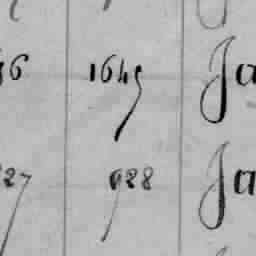 46 1645 Ja
27 928 Ja